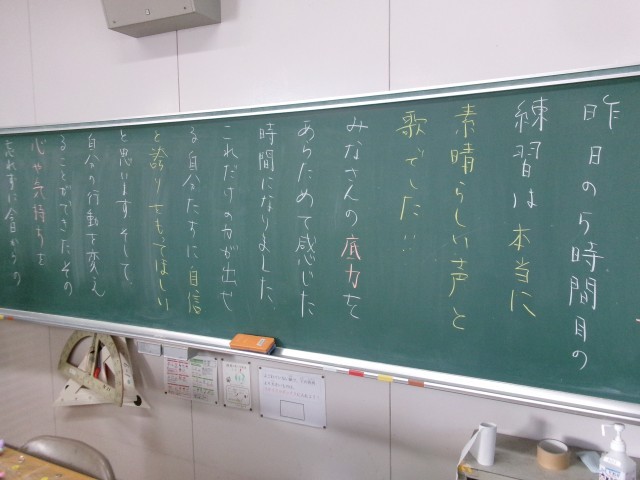 昨日の5時間目の
練習は本当に
素晴らしい声と
歌でした!!
みなさんの底力を
あらためて感じた
時間になりました
これだけの力が出せ
る自分たちに自信
と誇りをもってほしい
と思います そして
自分の行動を変え
ることができたその
心や気持ちを
忘れずに今日からの